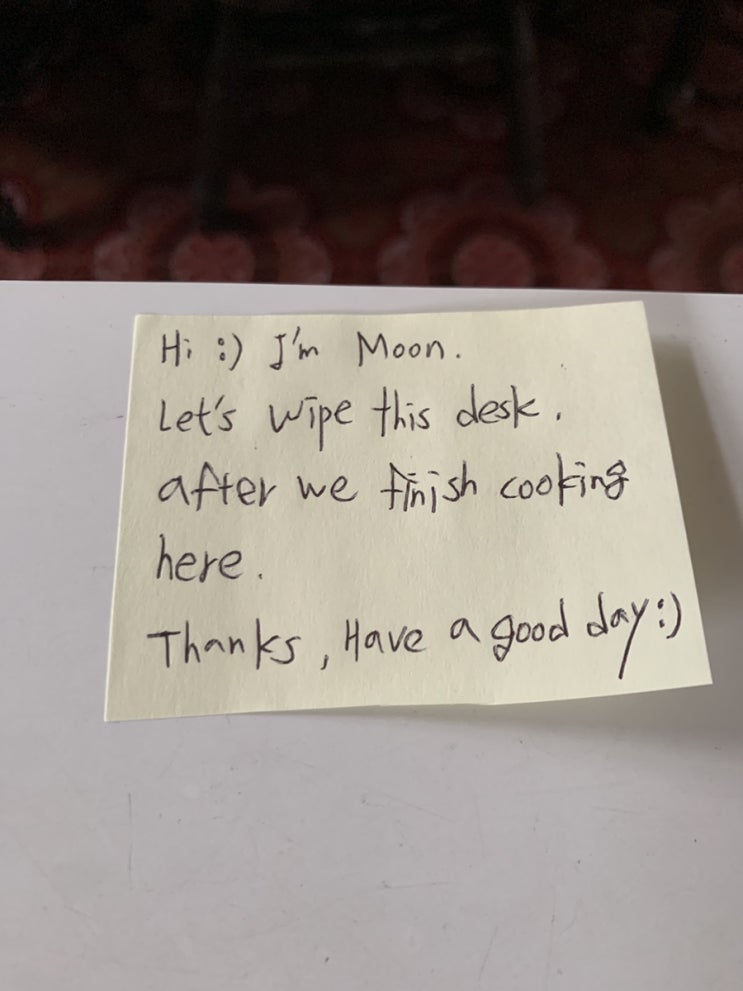 Hi :) I'm Moon.
Let's wipe this desk.
after we finish cooking
here.
Thanks, Have a good day :)